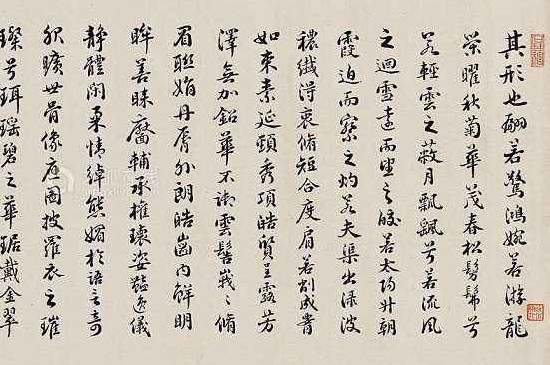 其形也翩若驚鴻婉若游龍
榮曜秋菊華茂春松髣髴兮
若輕雲之蔽月飄飖兮若流風
之迴雪遠而望之皎若太陽升朝
霞迫而察之灼若夫渠出渌波
穠纖得衷脩短合度肩若削成腰
如束素延頸秀項皓質呈露芳
澤無加鉛華不御雲髻峩〻脩
眉聯娟丹脣外朗皓齒內鮮明
眸善睞靨輔承權瓌姿豔逸儀
靜體閑柔情綽態媚於語言奇
服曠世骨像應圖披羅衣之璀
璨兮珥瑤碧之華琚戴金翠